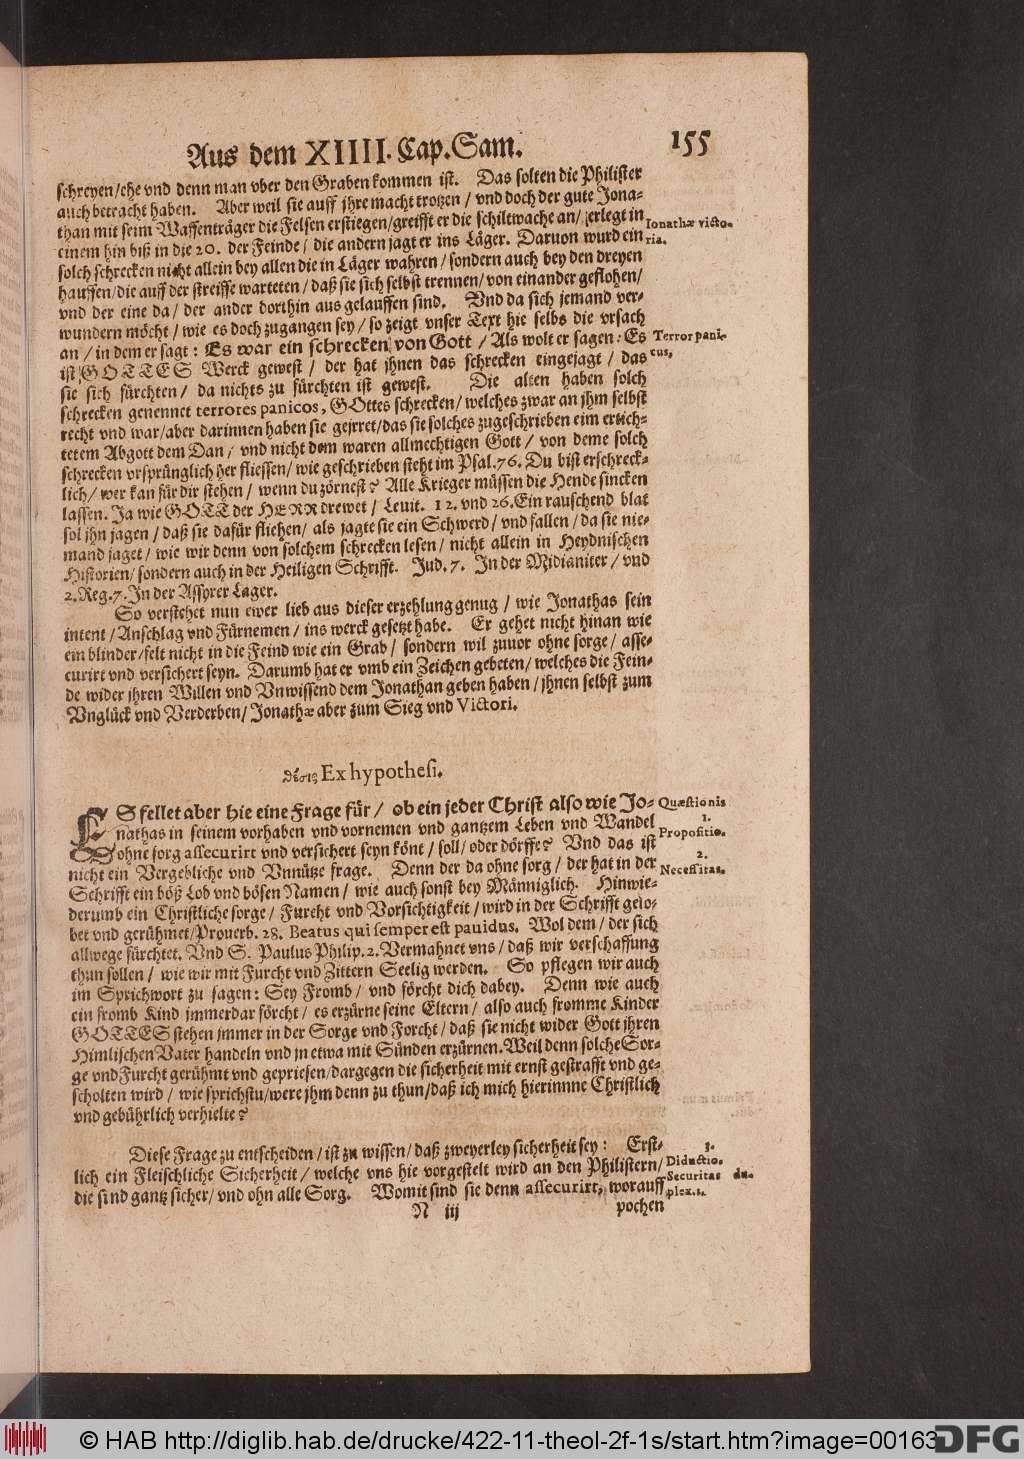 Aus dem XIIII. Cap. Sam. 155
schreyen/ehe vnd denn man vber den Graben kommen ist. Das solten die Philister
auch betracht haben. Aber weil sie auff jhre macht trotzen/vnd doch der gute Jona-
than mit seim Waffenträger die Felsen erstiegen/greifft er die schiltwache an/zerlegt in
Ionathæ victo-
einem hin biß in die 20. der Feinde/die andern jagt er ins Läger. Daruon wurd ein
ria.
solch schrecken nicht allein bey allen die in Läger wahren/sondern auch bey den dreyen
hauffen/die auff der streiffe warteten/daß sie sich selbst trennen/von einander geflohen/
vnd der eine da/der ander dorthin aus gelauffen sind. Vnd da sich jemand ver-
wundern möcht/wie es doch zugangen sey/so zeigt vnser Text hie selbs die vrsach
an/in dem er sagt: Es war ein schrecken von Gott/Als wolt er sagen: Es
Terror pani-
cus,
ist GOTTES Werck gewest/der hat jhnen das schrecken eingejagt/das
sie sich fürchten/da nichts zu fürchten ist gewest. Die alten haben solch
schrecken genennet terrores panicos, GOttes schrecken/welches zwar an jhm selbst
recht vnd war/aber darinnen haben sie gejrret/das sie solches zugeschrieben eim ertich-
tetem Abgott dem Dan/vnd nicht dem waren allmechtigen Gott/von deme solch
schrecken vrsprünglich her fliessen/wie geschrieben steht im Psal. 76. Du bist erschreck-
lich/wer kan für dir stehen/wenn du zörnest? Alle Krieger müssen die Hende sincken
lassen. Ja wie GOTT der HERR drewet/Leuit. 12. vnd 26. Ein rauschend blat
sol jhn jagen/daß sie dafür fliehen/als jagte sie ein Schwerd/vnd fallen/da sie nie-
mand jaget/wie wir denn von solchem schrecken lesen/nicht allein in Heydnischen
Historien/sondern auch in der Heiligen Schrifft. Jud. 7. In der Midianiter/vnd
2. Reg. 7. In der Assyrer Lager.
So verstehet nun ewer lieb aus dieser erzehlung genug/wie Jonathas sein
intent/Anschlag vnd Fürnemen/ins werck gesetzt habe. Er gehet nicht hinan wie
ein blinder/felt nicht in die Feind wie ein Grab/sondern wil zuuor ohne sorge/asse-
curirt vnd versichert seyn. Darumb hat er vmb ein Zeichen gebeten/welches die Fein-
de wider jhren Willen vnd Vnwissend dem Jonathan geben haben/jhnen selbst zum
Vnglück vnd Verderben/Jonathæ aber zum Sieg vnd Victori.
θέσις Ex hypothesi.
ES fellet aber hie eine Frage für/ob ein jeder Christ also wie Jo-
Quæstionis
1.
nathas in seinem vorhaben vnd vornemen vnd gantzem Leben vnd Wandel
Propositio.
ohne sorg assecurirt vnd versichert seyn könt/soll/oder dörffe? Vnd das ist
2.
nicht ein Vergebliche vnd Vnnütze frage. Denn der da ohne sorg/der hat in der
Necessitas.
Schrifft ein böß Lob vnd bösen Namen/wie auch sonst bey Männiglich. Hinwie-
derumb ein Christliche sorge/Furcht vnd Vorsichtigkeit/wird in der Schrifft gelo-
bet vnd gerühmet/Prouerb. 28. Beatus qui semper est pauidus. Wol dem/der sich
allwege fürchtet. Vnd S. Paulus Philip. 2. Vermahnet vns/daß wir verschaffung
thun sollen/wie wir mit Furcht vnd Zittern Seelig werden. So pflegen wir auch
im Sprichwort zu sagen: Sey Fromb/vnd förcht dich dabey. Denn wie auch
ein fromb Kind jmmerdar förcht/es erzürne seine Eltern/also auch fromme Kinder
GOTTES stehen jmmer in der Sorge vnd Forcht/daß sie nicht wider Gott jhren
Himlischen Vater handeln vnd jn etwa mit Sünden erzürnen. Weil denn solche Sor-
ge vnd Furcht gerühmt vnd gepriesen/dargegen die sicherheit mit ernst gestrafft vnd ge-
scholten wird/wie sprichstu/were jhm denn zu thun/daß ich mich hierinnne Christlich
vnd gebührlich verhielte?
Diese Frage zu entscheiden/ist zu wissen/daß zweyerley sicherheit sey: Erst-
3.
lich ein Fleischliche Sicherheit/welche vns hie vorgestelt wird an den Philistern/
Diductio.
Securitas du-
die sind gantz sicher/vnd ohn alle Sorg. Womit sind sie denn assecurirt, worauff
plex. 1.
N iij pochen
© HAB http://diglib.hab.de/drucke/422-11-theol-2f-1s/start.htm?image=00163
DFG